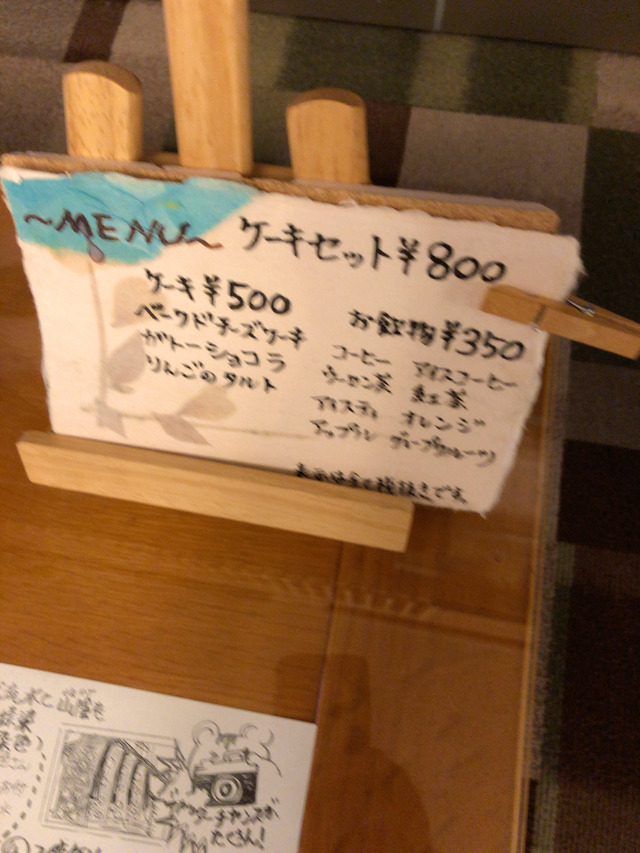 ~MENU~ ケーキセット¥800
ケーキ¥500
ベークドチーズケーキ
ガトーショコラ
りんごのタルト
お飲物¥350
コーヒー アイスコーヒー
ウーロン茶 紅茶
アイスティ オレンジ
アップル グレープフルーツ
表示料金は税抜きです。
シャッターチャンスが
たくさん!